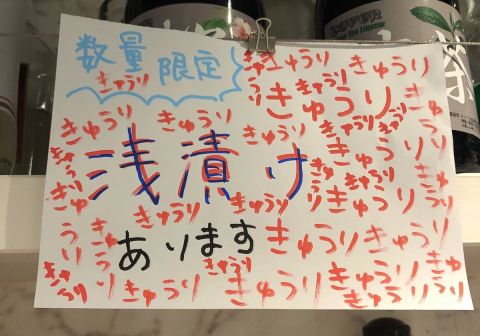 数量
限定
きゅうり
きゅうり
きゅうり
きゅうり
きゅうり
きゅうり
きゅうり
きゅうり
浅漬け
きゅうり
きゅうり
きゅうり
きゅうり
きゅうり
きゅうり
きゅうり
あります
きゅうり
きゅうり
きゅうり
きゅうり
きゅうり
きゅうり
きゅうり
きゅうり
きゅうり
DOVER
Tea Liqueur
茶